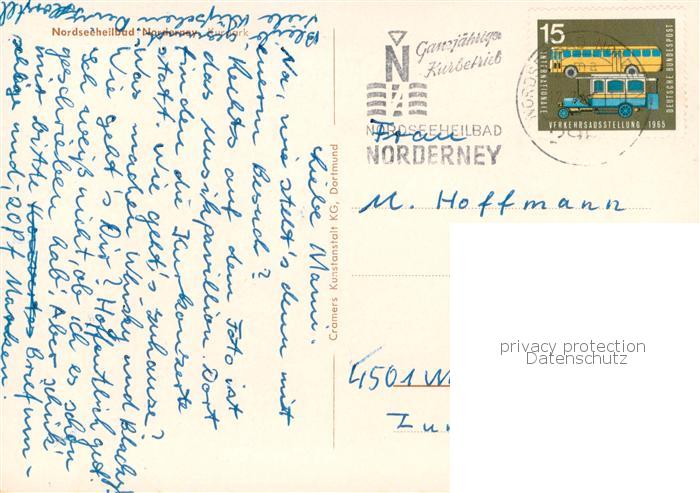 Nordseeheilbad Norderney, Kurpark
Liebe Mami.
Na, wie steht's denn mit
Deinem Besuch?
Rechts auf dem Foto ist
das Musikpavillion. Dort
finden die Kurkonzerte
statt. Wie geht's zuhause?
Was machen Wansky und Blacky?
Wie geht's Dir? Hoffentlich gut.
Ich weiß nicht, ob ich es schon
geschrieben hab! Aber schick'
mir bitte Briefum-
schläge und 20Pf Marken.
Viele
Cramers Kunstanstalt KG, Dortmund
Ganzjähriger
Kurbetrieb
N
NORDSEEHEILBAD
NORDERNEY
15
INTERNATIONALE
VERKEHRSAUSSTELLUNG 1965
DEUTSCHE BUNDESPOST
Frau
M. Hoffmann
4501
privacy protection
Datenschutz